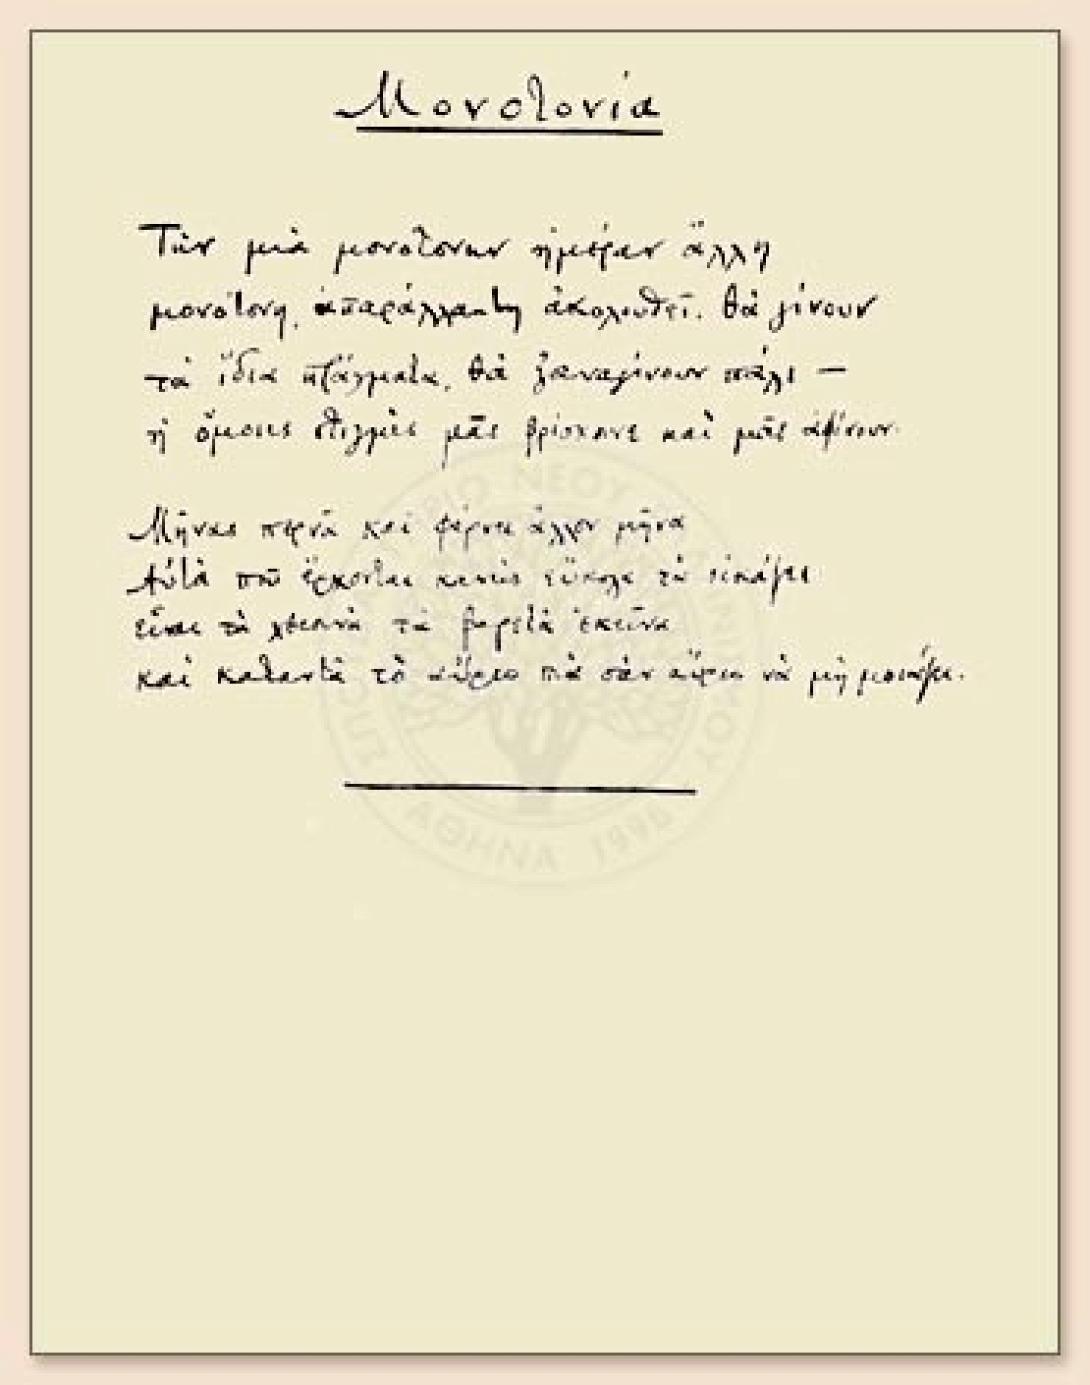 Μονοτονία
Τὴν μιὰ μονότονην ἡμέραν ἄλλη
μονότονη, ἀπαράλλακτη ἀκολουθεῖ. Θὰ γίνουν
τὰ ἴδια πράγματα, θὰ ξαναγίνουν πάλι —
ἡ ὅμοιες στιγμὲς μᾶς βρίσκουνε καὶ μᾶς ἀφίνουν.
Μῆνας περνᾶ καὶ φέρνει ἄλλον μῆνα
Αὐτὰ ποῦ ἔρχονται κανεὶς εὔκολα τὰ εἰκάζει
εἶναι τὰ χθεσινὰ τὰ βαρετὰ ἐκεῖνα
καὶ καταντᾶ τὸ αὔριο πιὰ σὰν αὔριο νὰ μὴ μοιάζει.
ΣΠΟΥ ΡΙΟ ΝΕΟΥ ΝΙΣΜΟΥ
ΑΘΗΝΑ 1996